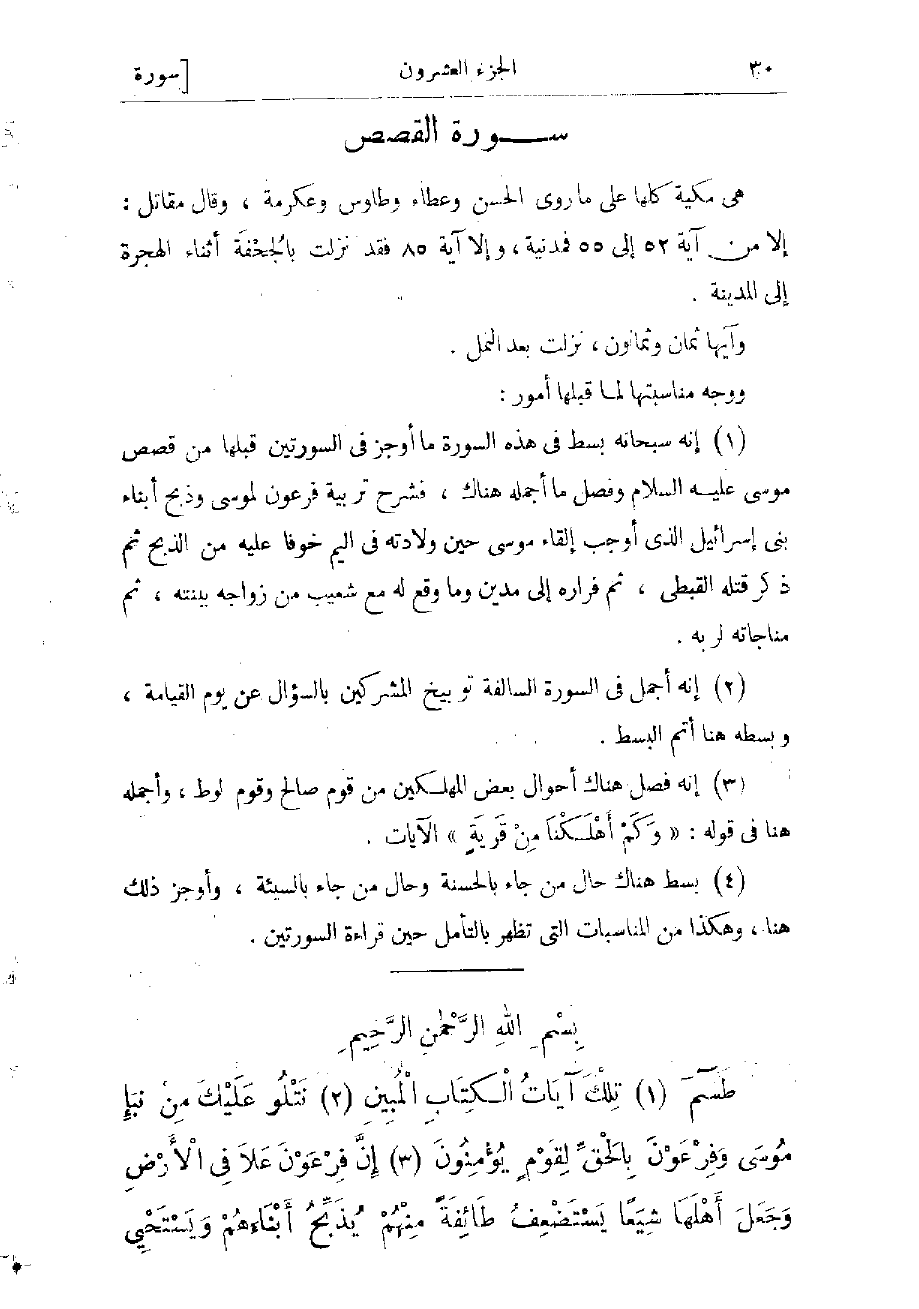 ٣٠ الجزء العشرون [سورة
ســورة القصص
هى مكية كلها على ما روى الحسن وعطاء وطاوس وعكرمة ، وقال مقاتل :
إلا من آية ٥٢ إلى ٥٥ فمدنية ، و إلا آية ٨٥ فقد نزلت بالجُحْفَة أثناء الهجرة
إلى المدينة .
وآيها ثمان وثمانون ، نزلت بعد النمل .
ووجه مناسبتها لما قبلها أمور :
(١) إنه سبحانه بسط فى هذه السورة ما أوجز فى السورتين قبلها من قصص
موسى عليه السلام وفصل ما أجمله هناك ، فشرح تربية فرعون لموسى وذبح أبناء
بنى إسرائيل الذى أوجب إلقاء موسى حين ولادته فى اليم خوفا عليه من الذبح ثم
ذكر قتله القبطى ، ثم فراره إلى مدين وما وقع له مع شعيب من زواجه ببنته ، ثم
مناجاته لربه .
(٢) إنه أجمل فى السورة السالفة توبيخ المشركين بالسؤال عن يوم القيامة ،
و بسطه هنا أتم البسط .
(٣) إنه فصل هناك أحوال بعض المهلكين من قوم صالح وقوم لوط ، وأجمله
هنا فى قوله : « وَكَمْ أَهْلَكْنَا مِنْ قَرْيَةٍ » الآيات .
(٤) بسط هناك حال من جاء بالحسنة وحال من جاء بالسيئة ، وأوجز ذلك
هنا ، وهكذا من المناسبات التى تظهر بالتأمل حين قراءة السورتين .
بِسْمِ اللهِ الرَّحْمٰنِ الرَّحِيمِ
طٓسٓمٓ (١) تِلْكَ آيَاتُ الْكِتَابِ الْمُبِينِ (٢) نَتْلُو عَلَيْكَ مِنْ نَبَإِ
مُوسَى وَفِرْعَوْنَ بِالْحَقِّ لِقَوْمٍ يُؤْمِنُونَ (٣) إِنَّ فِرْعَوْنَ عَلاَ فِى الْأَرْضِ
وَجَعَلَ أَهْلَهَا شِيَعًا يَسْتَضْعِفُ طَائِفَةً مِنْهُمْ يُذَبِّحُ أَبْنَاءهُمْ وَيَسْتَحْيِي